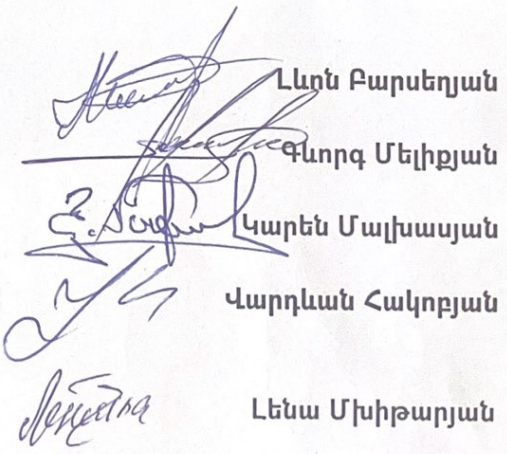 Լևոն Բարսեղյան
Գևորգ Մելիքյան
Կարեն Մալխասյան
Վարդևան Հակոբյան
Լենա Մխիթարյան